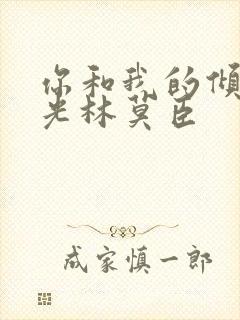 你和我的倾
光林莫臣
成家慎一郎